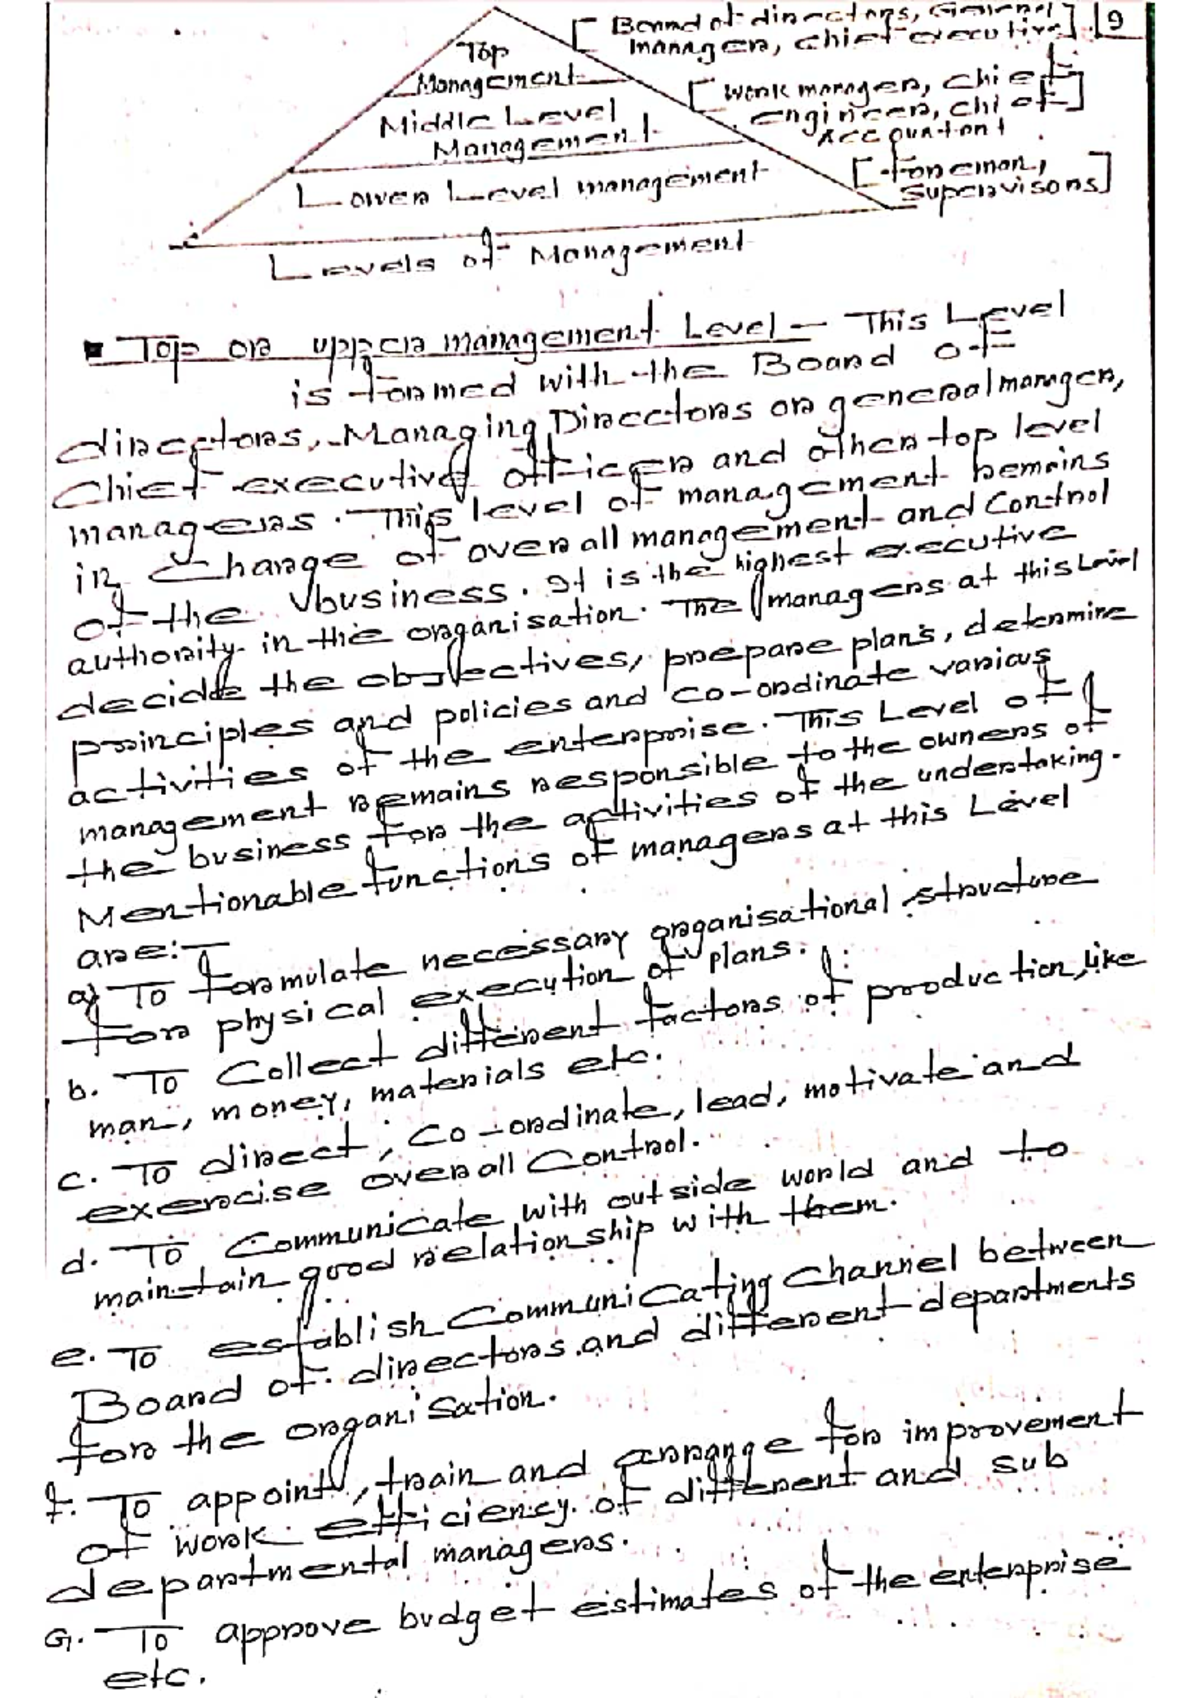 [Board of directors, General
manager, chief executive]
9
Top
Management
[work manager, chief
engineer, chief
Accountant]
Middle Level
Management
[foreman,
supervisors]
Lower Level management
Levels of Management
Top or upper management Level — This Level
is formed with the Board of
directors, Managing Directors or general manager,
Chief executive officer and other top level
managers. This level of management remains
in charge of overall management and Control
of the business. It is the highest executive
authority in the organisation. The managers at this Level
decide the objectives, prepare plans, determine
principles and policies and co-ordinate various
activities of the enterprise. This Level of
management remains responsible to the owners of
the business for the activities of the undertaking.
Mentionable functions of managers at this Level
are:—
a) To formulate necessary organisational structure
for physical execution of plans.
b. To Collect different factors of production, like
man, money, materials etc.
c. To direct, Co-ordinate, lead, motivate and
exercise overall Control.
d. To Communicate with outside world and to
maintain good relationship with them.
e. To establish Communicating Channel between
Board of directors and different departments
for the organisation.
f. To appoint, train and arrange for improvement
of work efficiency of different and sub
departmental managers.
G. To approve budget estimates of the enterprise
etc.